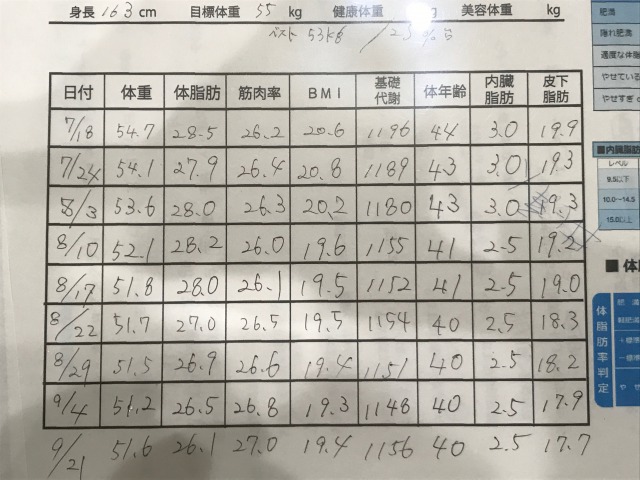 身長 163 cm 目標体重 55 kg 健康体重 kg 美容体重 kg
ベスト 53kg / 23%台
日付 体重 体脂肪 筋肉率 BMI 基礎代謝 体年齢 内臓脂肪 皮下脂肪
7/18 54.7 28.5 26.2 20.6 1196 44 3.0 19.9
7/24 54.1 27.9 26.4 20.8 1189 43 3.0 19.3
8/3 53.6 28.0 26.3 20.2 1180 43 3.0 19.3
8/10 52.1 28.2 26.0 19.6 1155 41 2.5 19.2
8/17 51.8 28.0 26.1 19.5 1152 41 2.5 19.0
8/22 51.7 27.0 26.5 19.5 1154 40 2.5 18.3
8/29 51.5 26.9 26.6 19.4 1151 40 2.5 18.2
9/4 51.2 26.5 26.8 19.3 1148 40 2.5 17.9
9/21 51.6 26.1 27.0 19.4 1156 40 2.5 17.7
肥満
隠れ肥満
適度な体脂
やせている
やせすぎ
■内臓脂肪
レベル
9.5以下
10.0~14.5
15.0以上
■体
体脂肪率判定
肥満
軽肥満
+標準
−標準
やせ